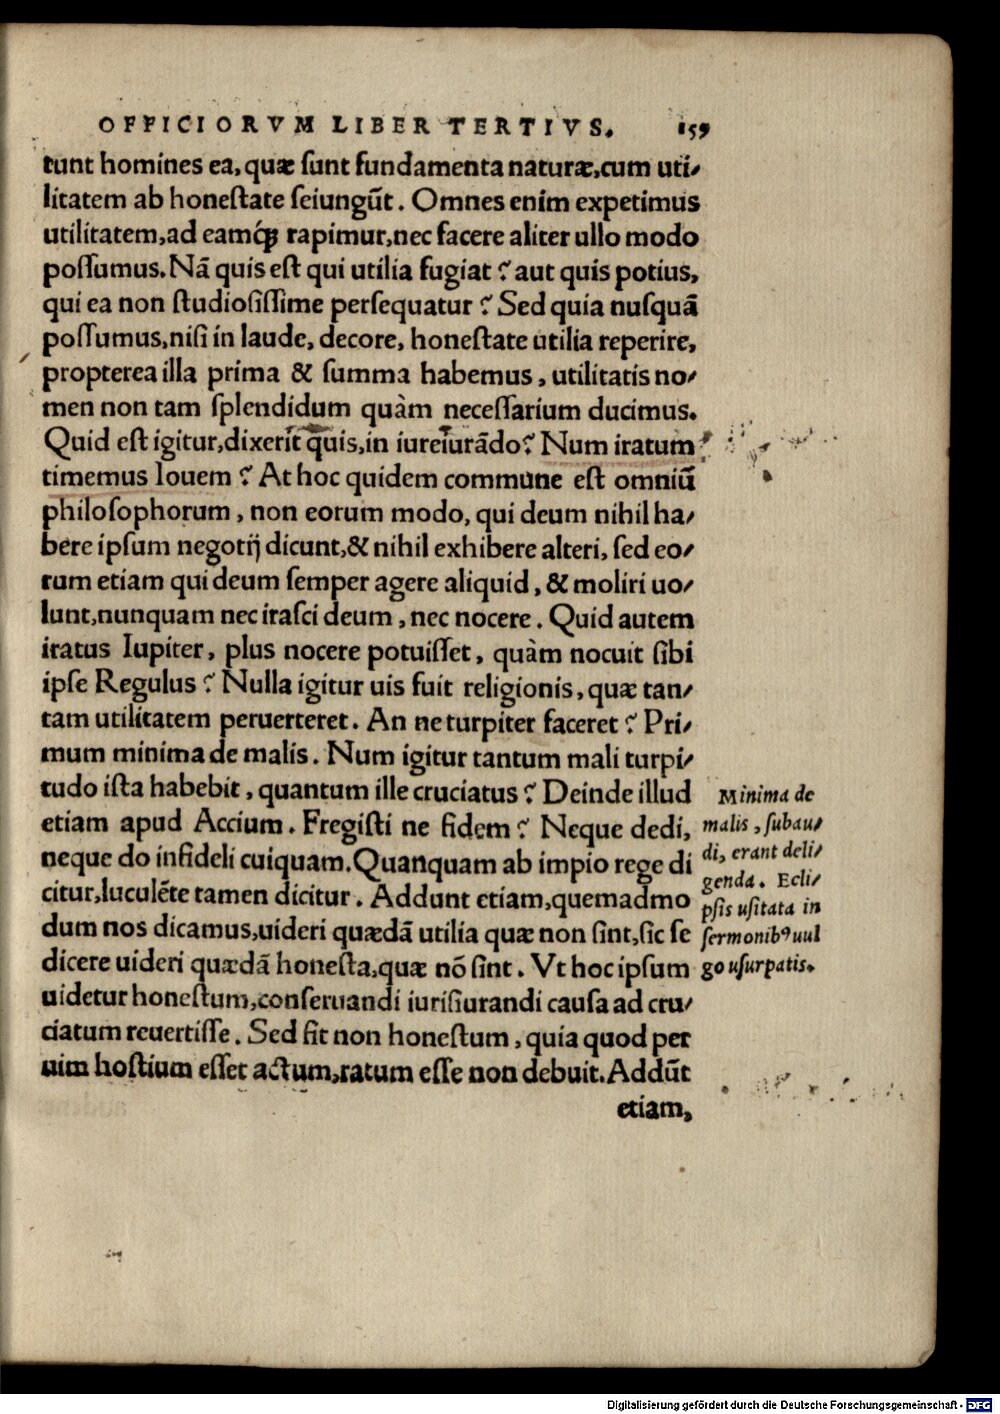 OFFICIORVM LIBER TERTIVS. 159
tunt homines ea, quæ ſunt fundamenta naturæ, cum uti/
litatem ab honeſtate ſeiungūt. Omnes enim expetimus
utilitatem, ad eamq́ꝫ rapimur, nec facere aliter ullo modo
poſſumus. Nā quis eſt qui utilia fugiat? aut quis potius,
qui ea non ſtudioſiſſime perſequatur? Sed quia nuſquā
poſſumus, niſi in laude, decore, honeſtate utilia reperire,
propterea illa prima & ſumma habemus, utilitatis no/
men non tam ſplendidum quàm neceſſarium ducimus.
Quid eſt igitur, dixerit quis, in iureiurādo? Num iratum
timemus Iouem? At hoc quidem commune eſt omniū
philoſophorum, non eorum modo, qui deum nihil ha/
bere ipſum negotij dicunt, & nihil exhibere alteri, ſed eo/
rum etiam qui deum ſemper agere aliquid, & moliri uo/
lunt, nunquam nec iraſci deum, nec nocere. Quid autem
iratus Iupiter, plus nocere potuiſſet, quàm nocuit ſibi
ipſe Regulus? Nulla igitur uis fuit religionis, quæ tan/
tam utilitatem peruerteret. An ne turpiter faceret? Pri/
mum minima de malis. Num igitur tantum mali turpi/
tudo iſta habebit, quantum ille cruciatus? Deinde illud
etiam apud Accium. Fregiſti ne fidem? Neque dedi,
neque do infideli cuiquam. Quanquam ab impio rege di
citur, luculēte tamen dicitur. Addunt etiam, quemadmo
dum nos dicamus, uideri quædā utilia quæ non ſint, ſic ſe
dicere uideri quædā honeſta, quæ nō ſint. Vt hoc ipſum
uidetur honeſtum, conſeruandi iuriſiurandi cauſa ad cru/
ciatum reuertiſſe. Sed fit non honeſtum, quia quod per
uim hoſtium eſſet actum, ratum eſſe non debuit. Addūt
etiam,
Minima de
malis, ſubau/
di, erant deli/
genda. Ecli/
pſis uſitata in
ſermonibꝰ uul
go uſurpatis.
Digitalisierung gefördert durch die Deutsche Forschungsgemeinschaft - DFG